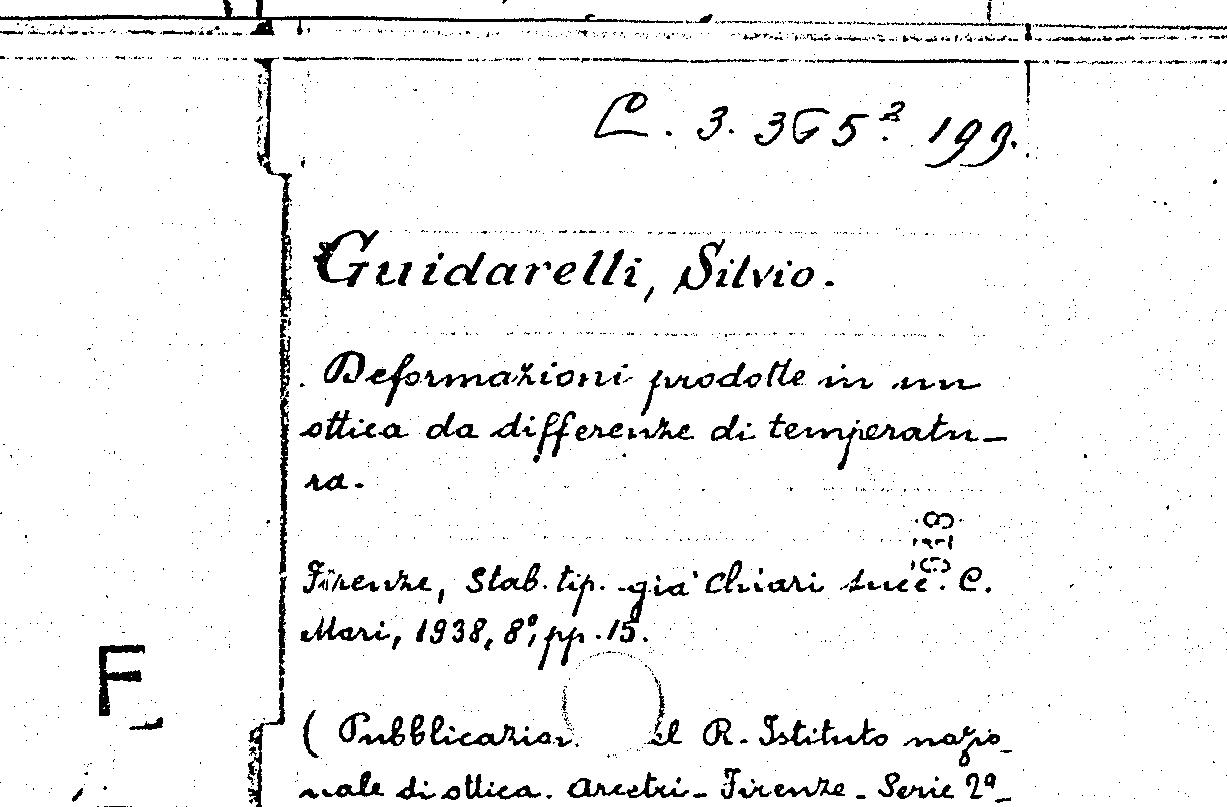 C. 3. 365². 199.
Guidarelli, Silvio.
Deformazioni prodotte in un
ottica da differenze di temperatu-
ra.
Firenze, Stab. tip. già Chiari succ. C.
Mari, 1938, 8°, pp. 15.
F
( Pubblicazion el R. Istituto nazio-
nale di ottica. Arcetri - Firenze - Serie 2ª-